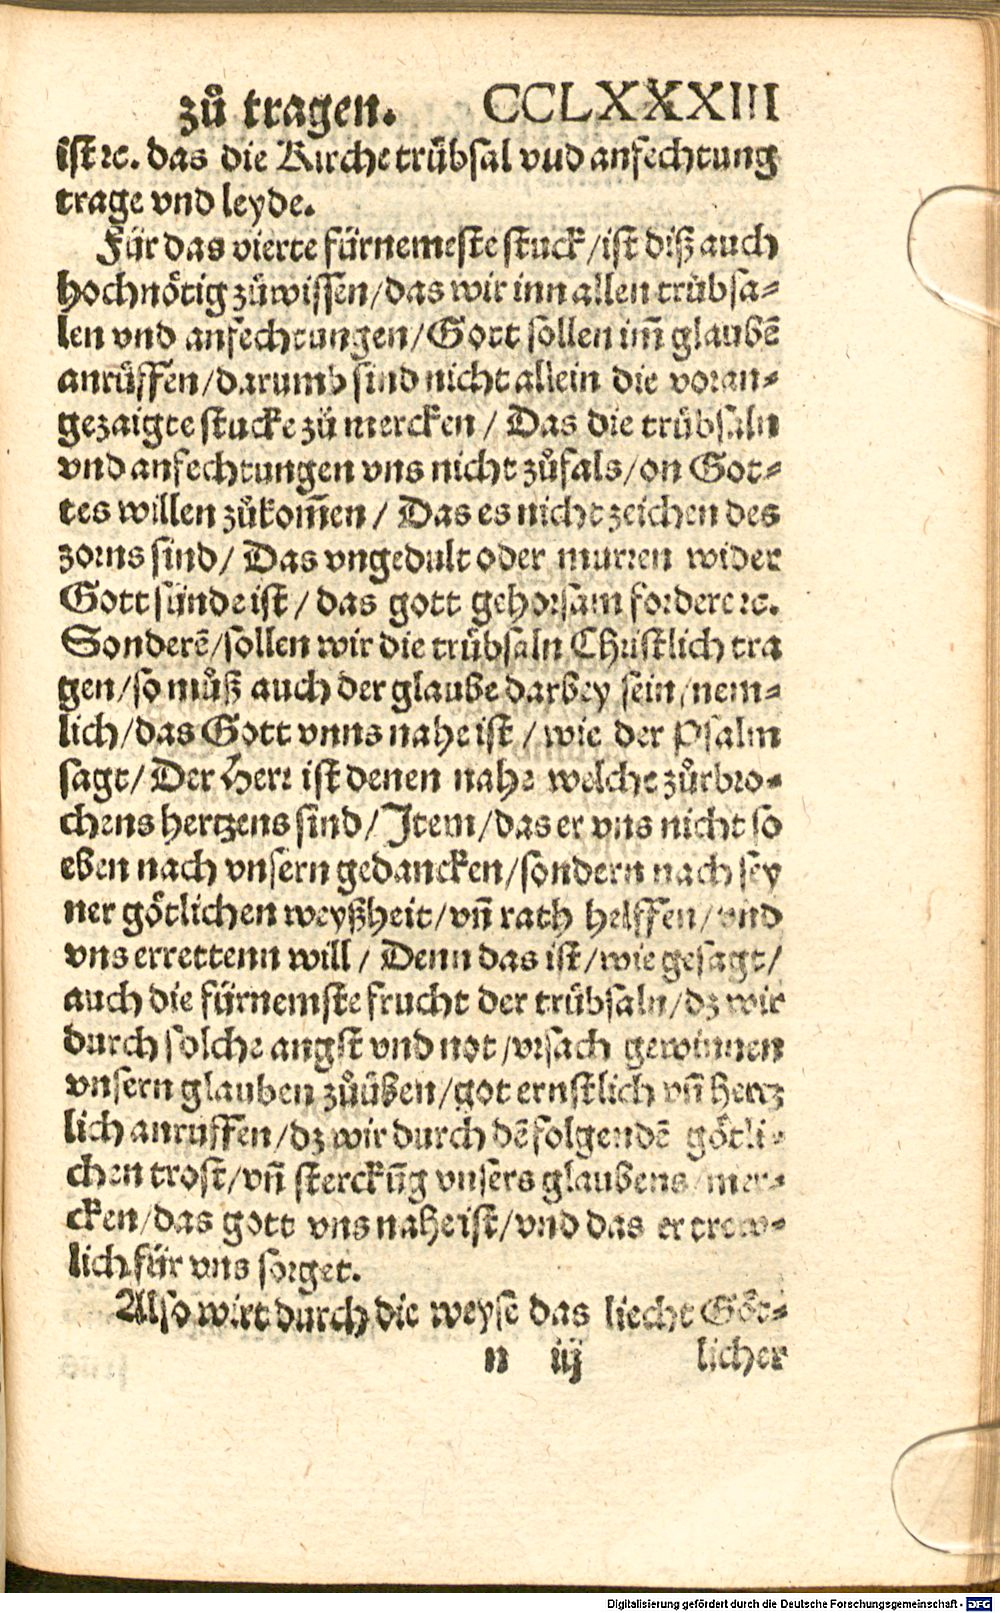 zů tragen. CCLXXXIII
ist ꝛc. das die Kirche trübsal vud anfechtung
trage vnd leyde.
Für das vierte fürnemeste stuck/ist diß auch
hochnötig zůwissen/das wir inn allen trübsa-
len vnd anfechtungen/Gott sollen im̃ glaubē
anrůffen/darumb sind nicht allein die voran-
gezaigte stucke zů mercken/ Das die trübsaln
vnd anfechtungen vns nicht zůfals/on Got-
tes willen zůkom̃en/ Das es nicht zeichen des
zorns sind/ Das vngedult oder murren wider
Gott sünde ist/ das gott gehorsam fordere ꝛc.
Sonderē/sollen wir die trübsaln Christlich tra
gen/so můß auch der glaube darbey sein/nem-
lich/das Gott vnns nahe ist/ wie der Psalm
sagt/ Der Herr ist denen nahe welche zůrbro-
chens hertzens sind/Item/das er vns nicht so
eben nach vnsern gedancken/sondern nach sey
ner götlichen weyßheit/vñ rath helffen/vnd
vns errettenn will/ Denn das ist/wie gesagt/
auch die fürnemste frucht der trübsaln/dz wir
durch solche angst vnd not/vrsach gewinnen
vnsern glauben zůüben/got ernstlich vñ hertz
lich anruffen/dz wir durch dē folgendē götli-
chen trost/vñ sterckũg vnsers glaubens/mer-
cken/das gott vns nahe ist/vnd das er trew-
lich für vns sorget.
Also wirt durch die weyse das liecht Göt-
n iij licher
Digitalisierung gefördert durch die Deutsche Forschungsgemeinschaft - DFG